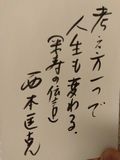 考え方一つで
人生も変わる。
(米寿の伝言)
西本匡克